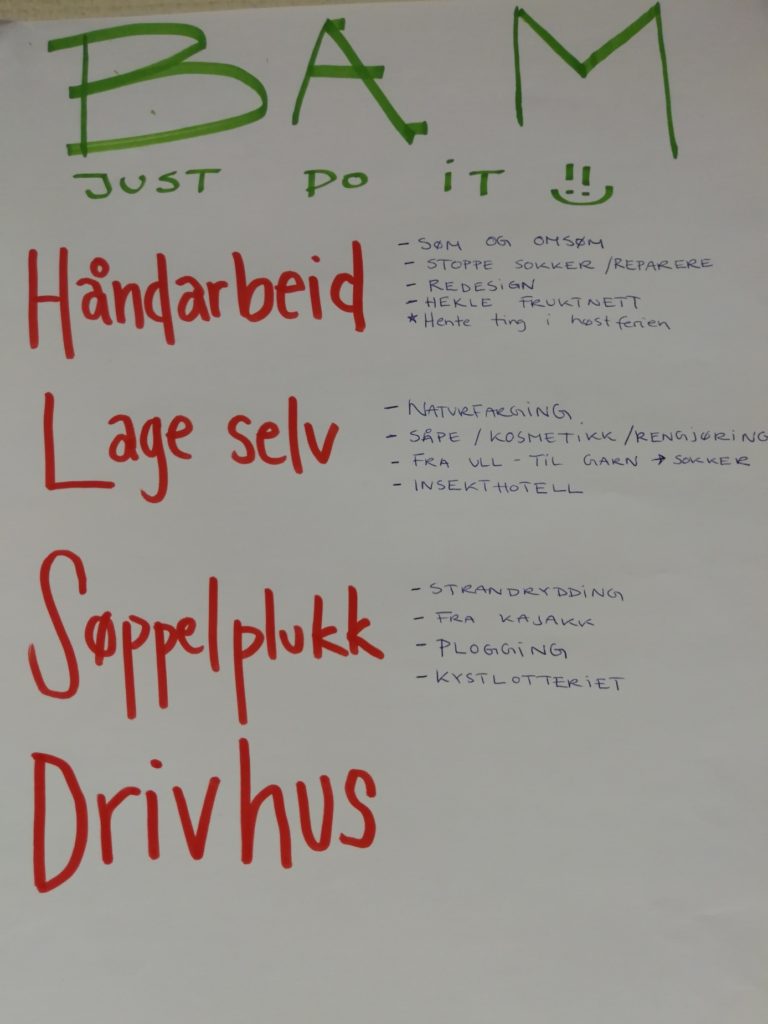 BAM
JUST DO iT
Håndarbeid
- SØM OG OMSØM
- STOPPE SOKKER / REPARERE
- REDESIGN
- HEKLE FRUKTNETT
* Hente ting i høstferien
Lage selv
- NATURFARGING
- SÅPE / KOSMETIKK / RENGJØRING
- FRA ULL - TIL GARN → SOKKER
- INSEKTHOTELL
Søppelplukk
- STRANDRYDDING
- FRA KAJAKK
- PLOGGING
- KYSTLOTTERIET
Drivhus